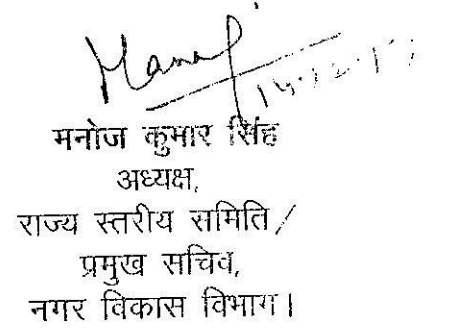 Manoj
मनोज कुमार सिंह
अध्यक्ष,
राज्य स्तरीय समिति/
प्रमुख सचिव,
नगर विकास विभाग।